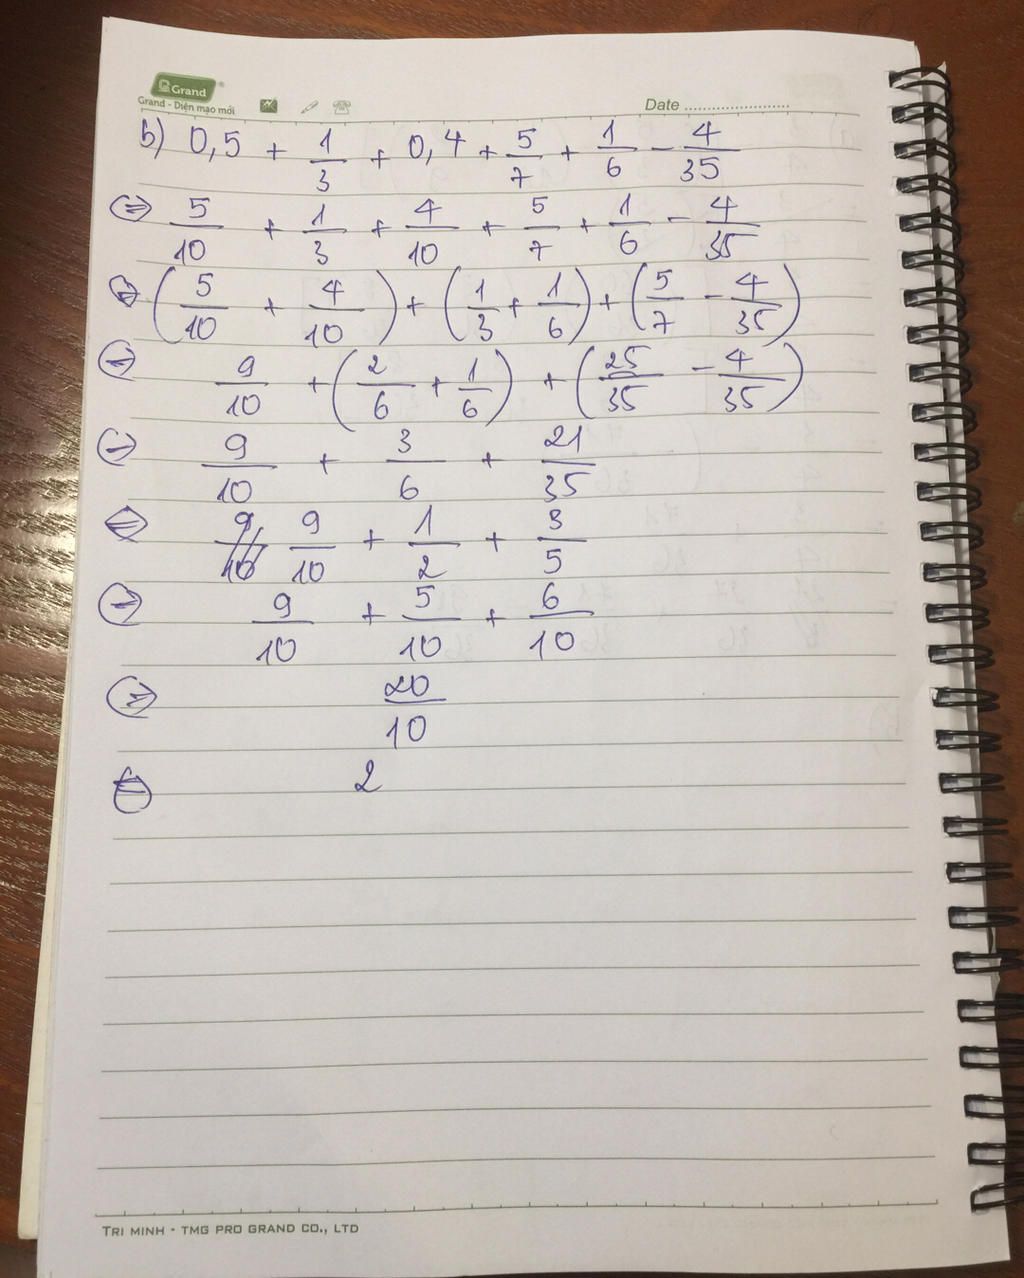 Grand
Grand - Diện mạo mới
Date ........................
b) 0,5 + 1/3 + 0,4 + 5/7 + 1/6 - 4/35
⇔ 5/10 + 1/3 + 4/10 + 5/7 + 1/6 - 4/35
⇔ (5/10 + 4/10) + (1/3 + 1/6) + (5/7 - 4/35)
⇔ 9/10 + (2/6 + 1/6) + (25/35 - 4/35)
⇔ 9/10 + 3/6 + 21/35
⇔ 9/10 9/10 + 1/2 + 3/5
⇔ 9/10 + 5/10 + 6/10
⇔ 20/10
⇔ 2
TRI MINH - TMG PRO GRAND CO., LTD